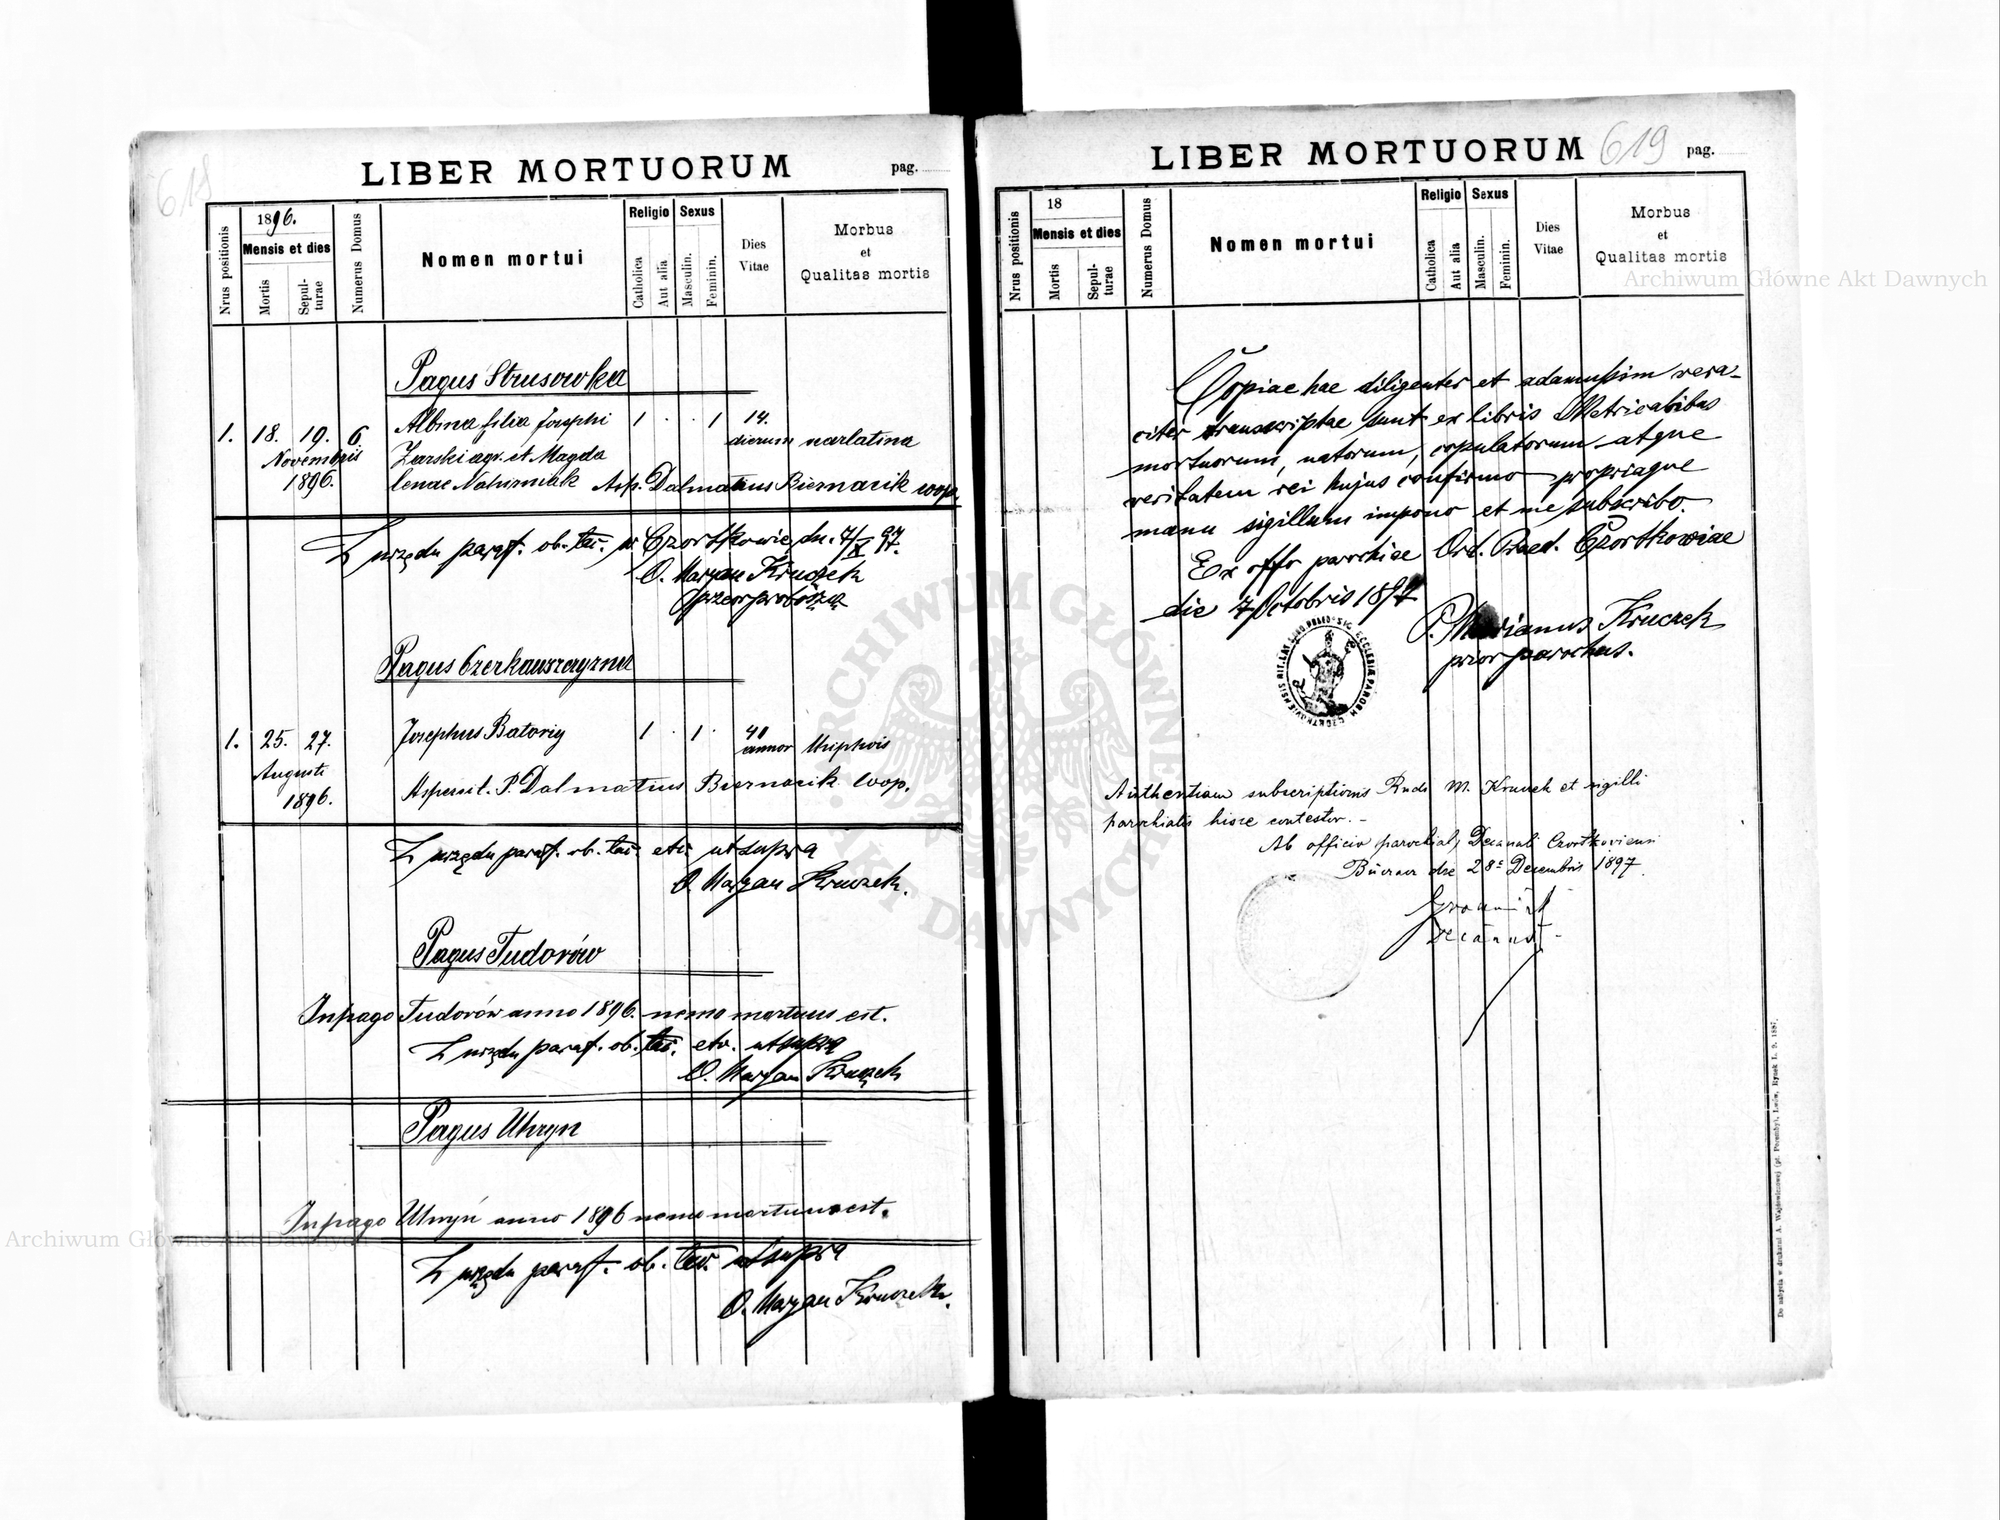 618
LIBER MORTUORUM
pag.
Nrus positionis
1896.
Mensis et dies
Mortis
Sepul-
turae
Numerus Domus
Nomen mortui
Religio
Catholica
Aut alia
Sexus
Masculin.
Feminin.
Dies
Vitae
Morbus
et
Qualitas mortis
Pagus Strusowka
1. 18. 19. 6. Albina filia Josephi 1 . . 1 14.
Novembris Zarski agr. et Magda dierum
1896. lenae Asp. Dalmatius Biernacik coop.
Z urzędu paraf. ob. łać. w Czortkowie, dn. 7/X 97.
O. Maryan Kruczek
przeor proboszcz
Pagus
1. 25. 27. Josephus Batoriy 1 . 1 . 40
Augusti annor
1896. Aspersit. P. Dalmatius Biernacik Coop.
Z urzędu paraf. ob. łać. etc. ut supra
O. Maryan Kruczek.
Pagus Tudorów
In pago Tudorów anno 1896. nemo mortuus est.
Z urzędu paraf. ob. łać. etc. ut supra
O. Maryan Kruczek
Pagus Uhryn
In pago Uhryń anno 1896 nemo mortuus est.
Z urzędu paraf. ob. łać. ut supra
O. Maryan Kruczek.
LIBER MORTUORUM 619 pag.
Nrus positionis
18
Mensis et dies
Mortis
Sepul-
turae
Numerus Domus
Nomen mortui
Religio
Catholica
Aut alia
Sexus
Masculin.
Feminin.
Dies
Vitae
Morbus
et
Qualitas mortis
Copiae hae diligenter et adamussim vera-
citer transcriptae sunt ex libris Metricalibus
mortuorum, natorum, copulatorum atque
veritatem rei hujus confirmo propriaque
manu sigillum impono et me subscribo.
Ex offo parochiae Ord. Praed. Czortkowiae
die 7 Octobris 1897
P. Marianus Kruczek
prior parochus.
Authentiam subscriptionis Rndi M. Kruczek et sigilli
parochialis hisce contestor. -
Ab officio parochiali Decanali Czortkoviensi
die 28 Decembris 1897.
Decanus
Archiwum Główne Akt Dawnych
Archiwum Główne Akt Dawnych
ARCHIWUM GŁÓWNE AKT DAWNYCH